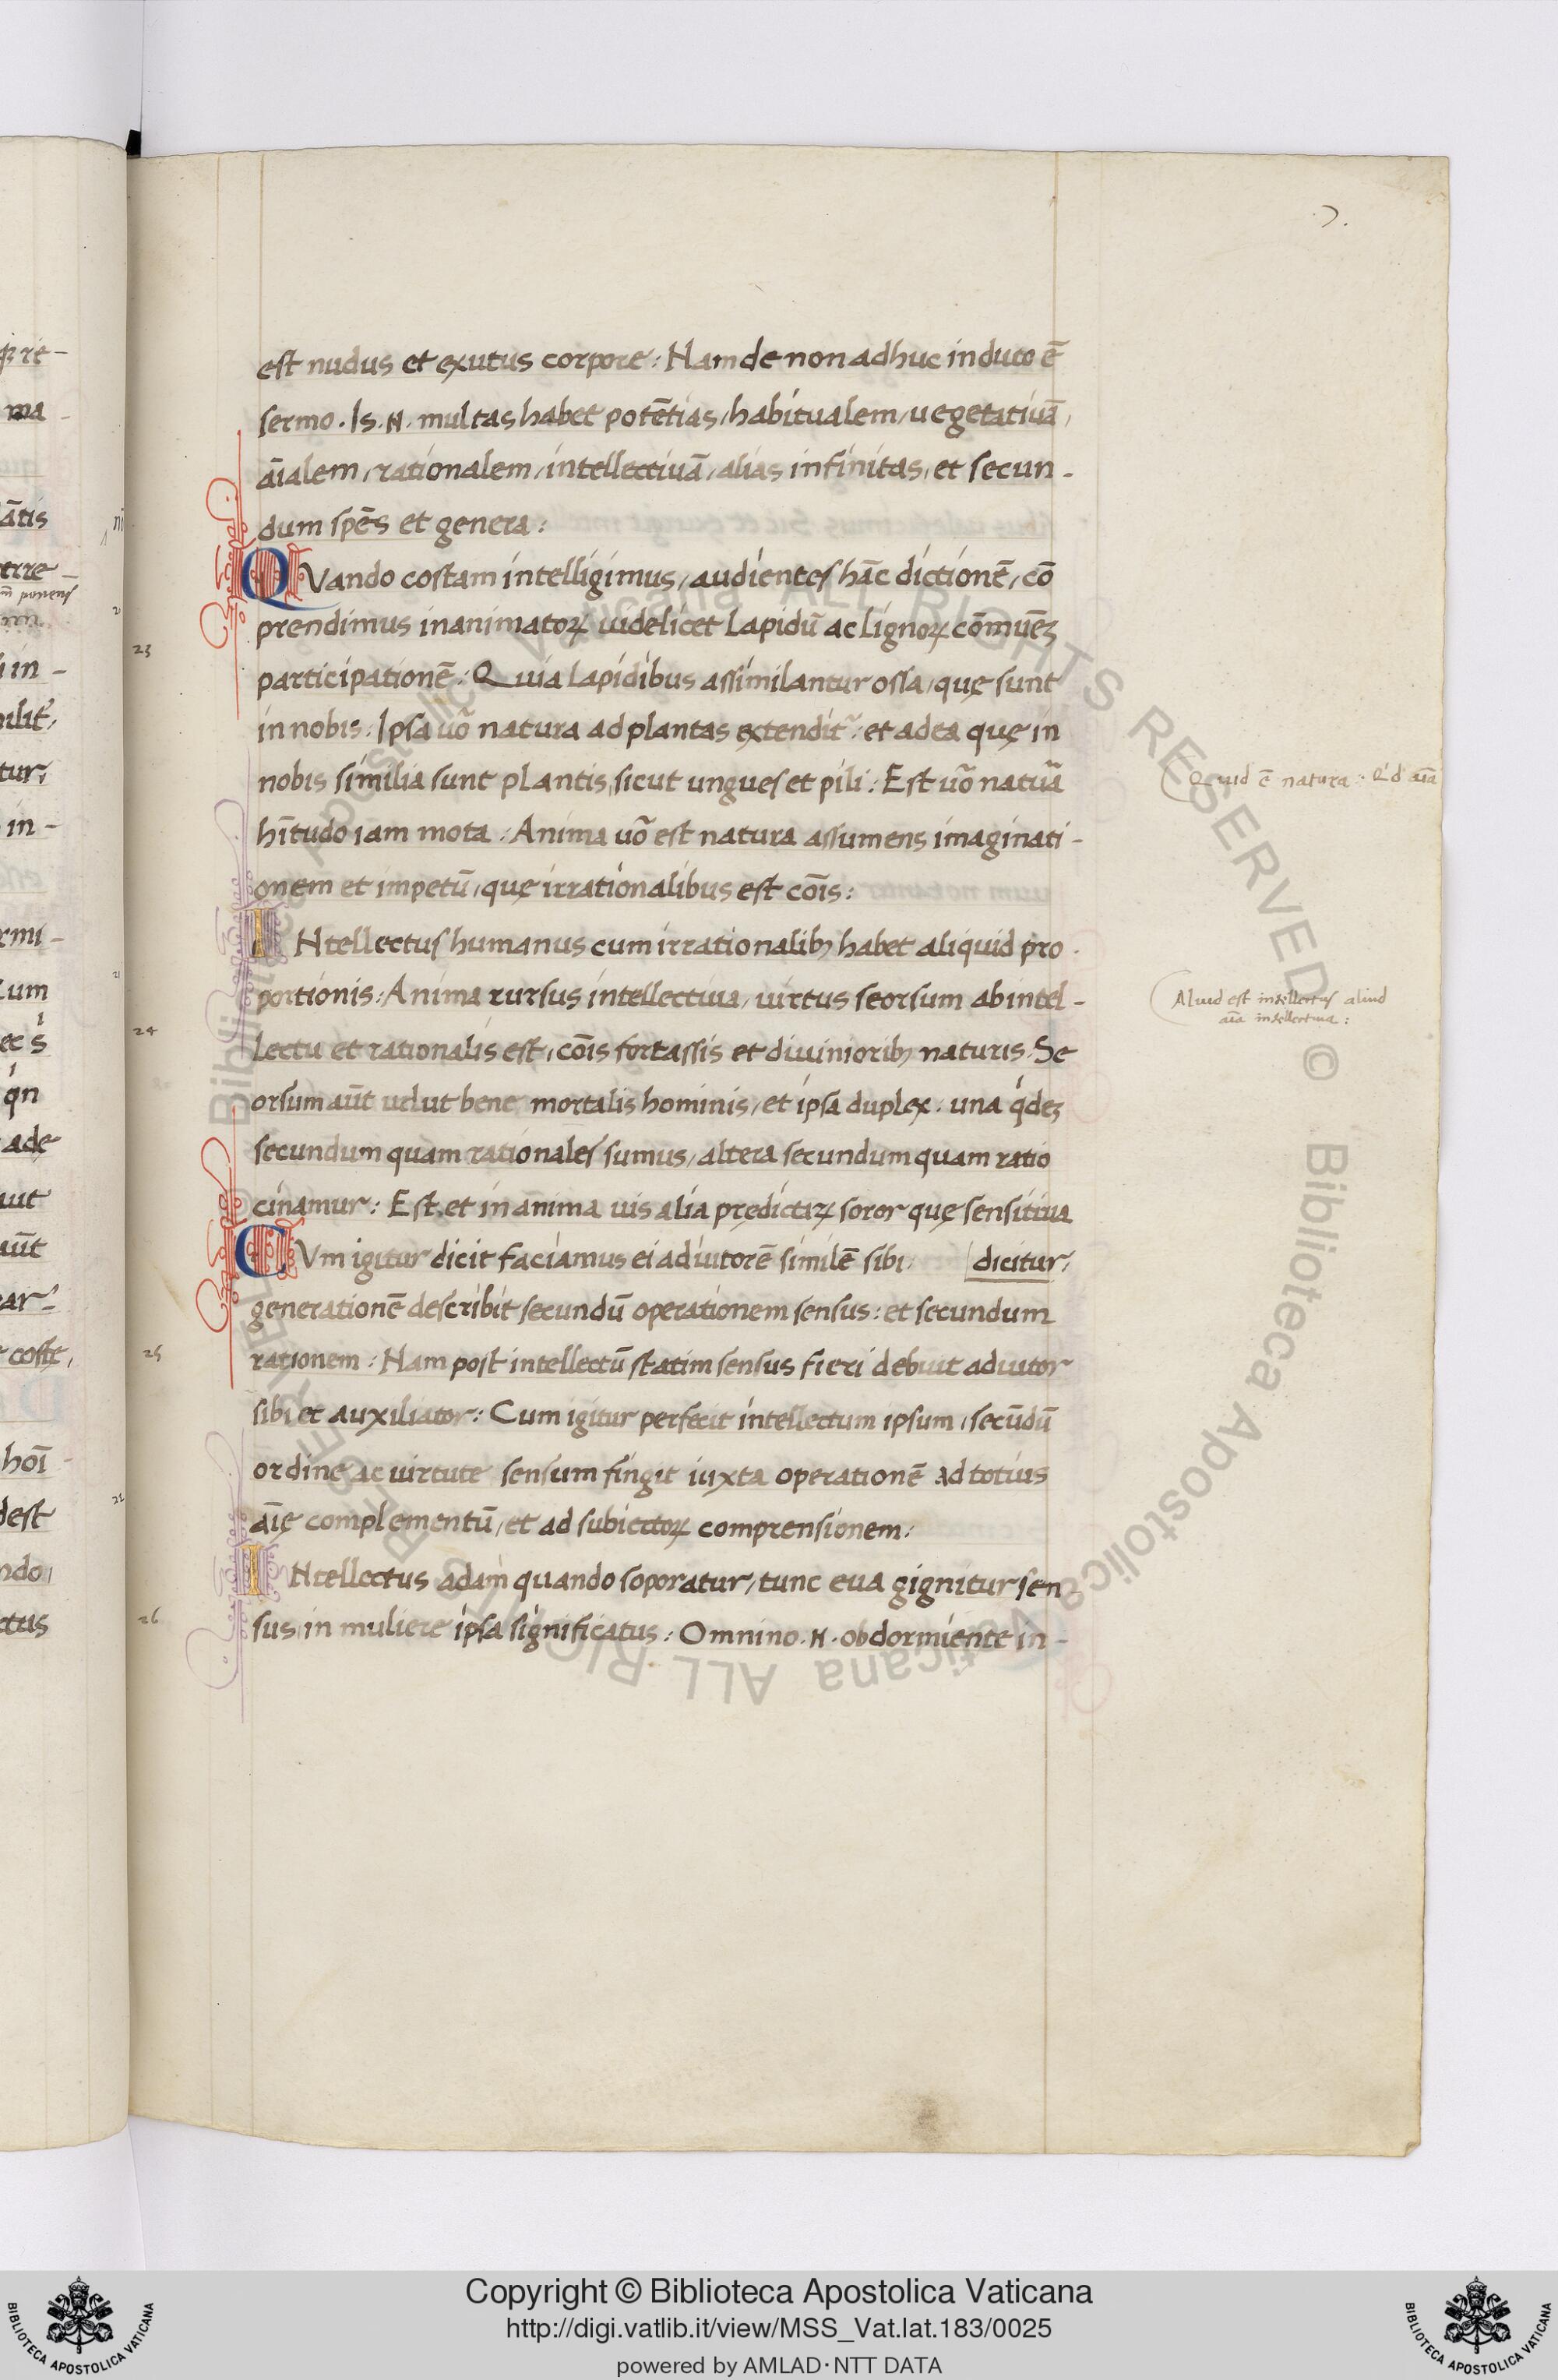 7.
est nudus et exutus corpore: Nam de non adhuc induto ē
sermo. Is .N. multas habet potētias, habitualem, uegetatiuā,
aīalem, rationalem, intellectiuā, alias infinitas, et secun-
dum spēs et genera:
QVando costam intelligimus, audientes hāc dictionē, cō
23
prendimus inanimatoꝝ uidelicet lapidū ac lignoꝝ cōmuēꝫ
participationē: Quia lapidibus assimilantur ossa, quę sunt
in nobis: Ipsa uō natura ad plantas extendit᷑: et ad ea quę in
nobis similia sunt plantis, sicut ungues et pili: Est uō natura
Quid ē natura: Qd aīa
hītudo iam mota: Anima uō est natura assumens imaginati-
onem et impetū, quę irrationalibus est cōis:
INtellectus humanus cum irrationalibꝫ habet aliquid pro
portionis: Anima rursus intellectiua, uirtus seorsum ab intel-
Aliud est intellectus aliud
aīa intellectiua:
24
lectu et rationalis est, cōis fortassis et diuinioribꝫ naturis. Se
orsum aūt uelut bene mortalis hominis, et ipsa duplex: una qdeꝫ
secundum quam rationales sumus, altera secundum quam ratio
cinamur: Est et in anima uis alia predictaꝝ soror quę sensitiua
dicitur,
CVm igitur dicit faciamus ei adiutorē similē sibi,
generationē describit secundū operationem sensus: et secundum
25
rationem: Nam post intellectū statim sensus fieri debuit adiutor
sibi et auxiliator: Cum igitur perfecit intellectum ipsum, secūdū
ordine ac uirtute sensum fingit iuxta operationē ad totius
aīę complementū, et ad subiectoꝝ comprensionem:
INtellectus adam quando soporatur, tunc eua gignitur sen
26
sus, in muliere ipsa significatus: Omnino .N. obdormiente in-
Copyright © Biblioteca Apostolica Vaticana
http://digi.vatlib.it/view/MSS_Vat.lat.183/0025
powered by AMLAD·NTT DATA
BIBLIOTECA APOSTOLICA VATICANA
BIBLIOTECA APOSTOLICA VATICANA